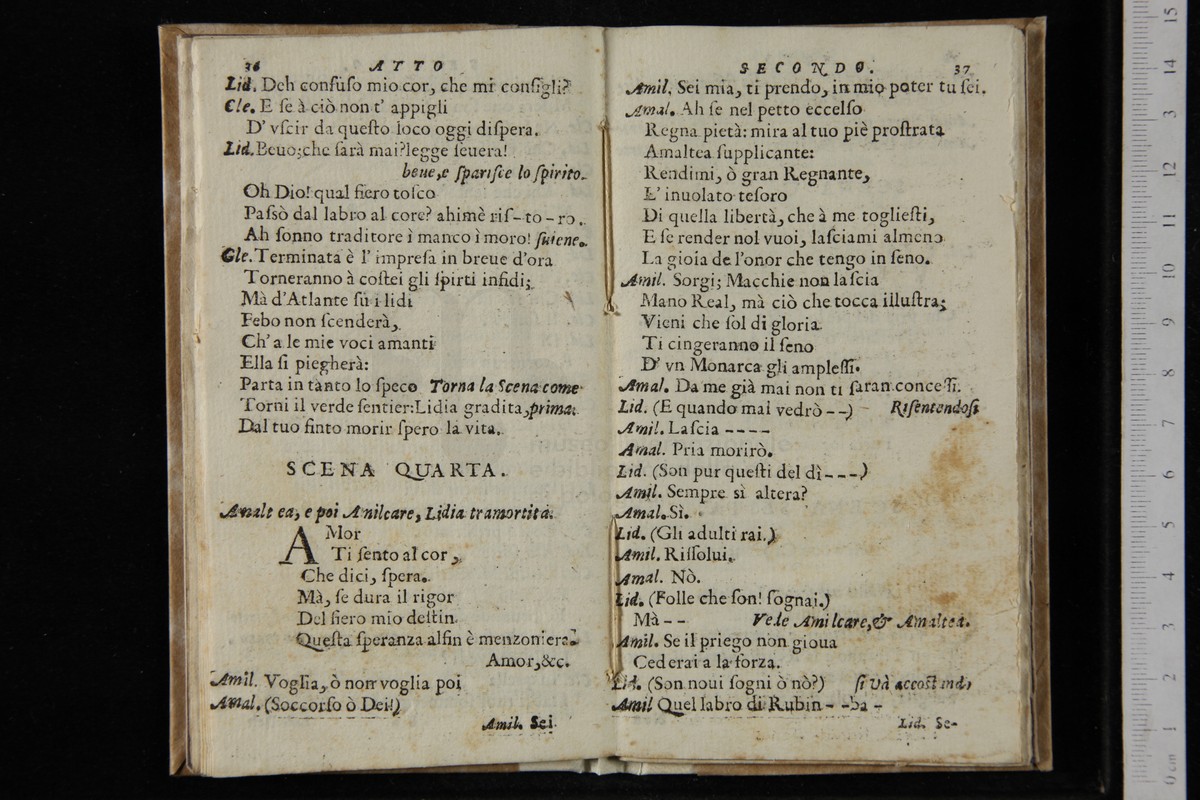 36 ATTO
Lid. Deh confuſo mio cor, che mi conſigli?
Cle. E ſe à ciò non t' appigli
D' vſcir da queſto loco oggi diſpera.
Lid. Beuo; che ſarà mai? legge ſeuera!
beue, e ſpariſce lo ſpirito.
Oh Dio! qual fiero toſco
Paſsò dal labro al core? ahimè riſ-to-ro.
Ah ſonno traditore ì manco ì moro! ſuiene.
Cle. Terminata è l' impreſa in breue d'ora
Torneranno à coſtei gli ſpirti infidi;
Mà d'Atlante sù i lidi
Febo non ſcenderà,
Ch' a le mie voci amanti
Ella ſi piegherà:
Parta in tanto lo ſpeco Torna la Scena come
Torni il verde ſentier: Lidia gradita, prima.
Dal tuo finto morir ſpero la vita.
SCENA QUARTA.
Amalt ea, e poi Amilcare, Lidia tramortita.
AMor
Ti ſento al cor,
Che dici, ſpera.
Mà, ſe dura il rigor
Del fiero mio deſtin
Queſta ſperanza alfin è menzoniera.
Amor, &c.
Amil. Voglia, ò non voglia poi
Amal. (Soccorſo ò Dei!)
Amil. Sei
SECONDO. 37
Amil. Sei mia, ti prendo, in mio poter tu ſei.
Amal. Ah ſe nel petto eccelſo
Regna pietà: mira al tuo piè proſtrata
Amaltea ſupplicante:
Rendimi, ò gran Regnante,
L' inuolato teſoro
Di quella libertà, che à me toglieſti,
E ſe render nol vuoi, laſciami almeno
La gioia de l'onor che tengo in ſeno.
Amil. Sorgi; Macchie non laſcia
Mano Real, mà ciò che tocca illuſtra;
Vieni che ſol di gloria
Ti cingeranno il ſeno
D' vn Monarca gli ampleſſi.
Amal. Da me già mai non ti ſaran conceſſi.
Lid. (E quando mai vedrò --) Riſentendoſi
Amil. Laſcia ----
Amal. Pria morirò.
Lid. (Son pur queſti del dì---)
Amil. Sempre sì altera?
Amal. Sì.
Lid. (Gli adulti rai.)
Amil. Riſſolui.
Amal. Nò.
Lid. (Folle che ſon! ſognai.)
Mà -- Vede Amilcare, & Amaltea.
Amil. Se il priego non gioua
Cederai a la forza.
Lid. (Son noui ſogni ò nò?) ſi và accoſtando
Amil Quel labro di Rubin- -ba -
Lid. Se-